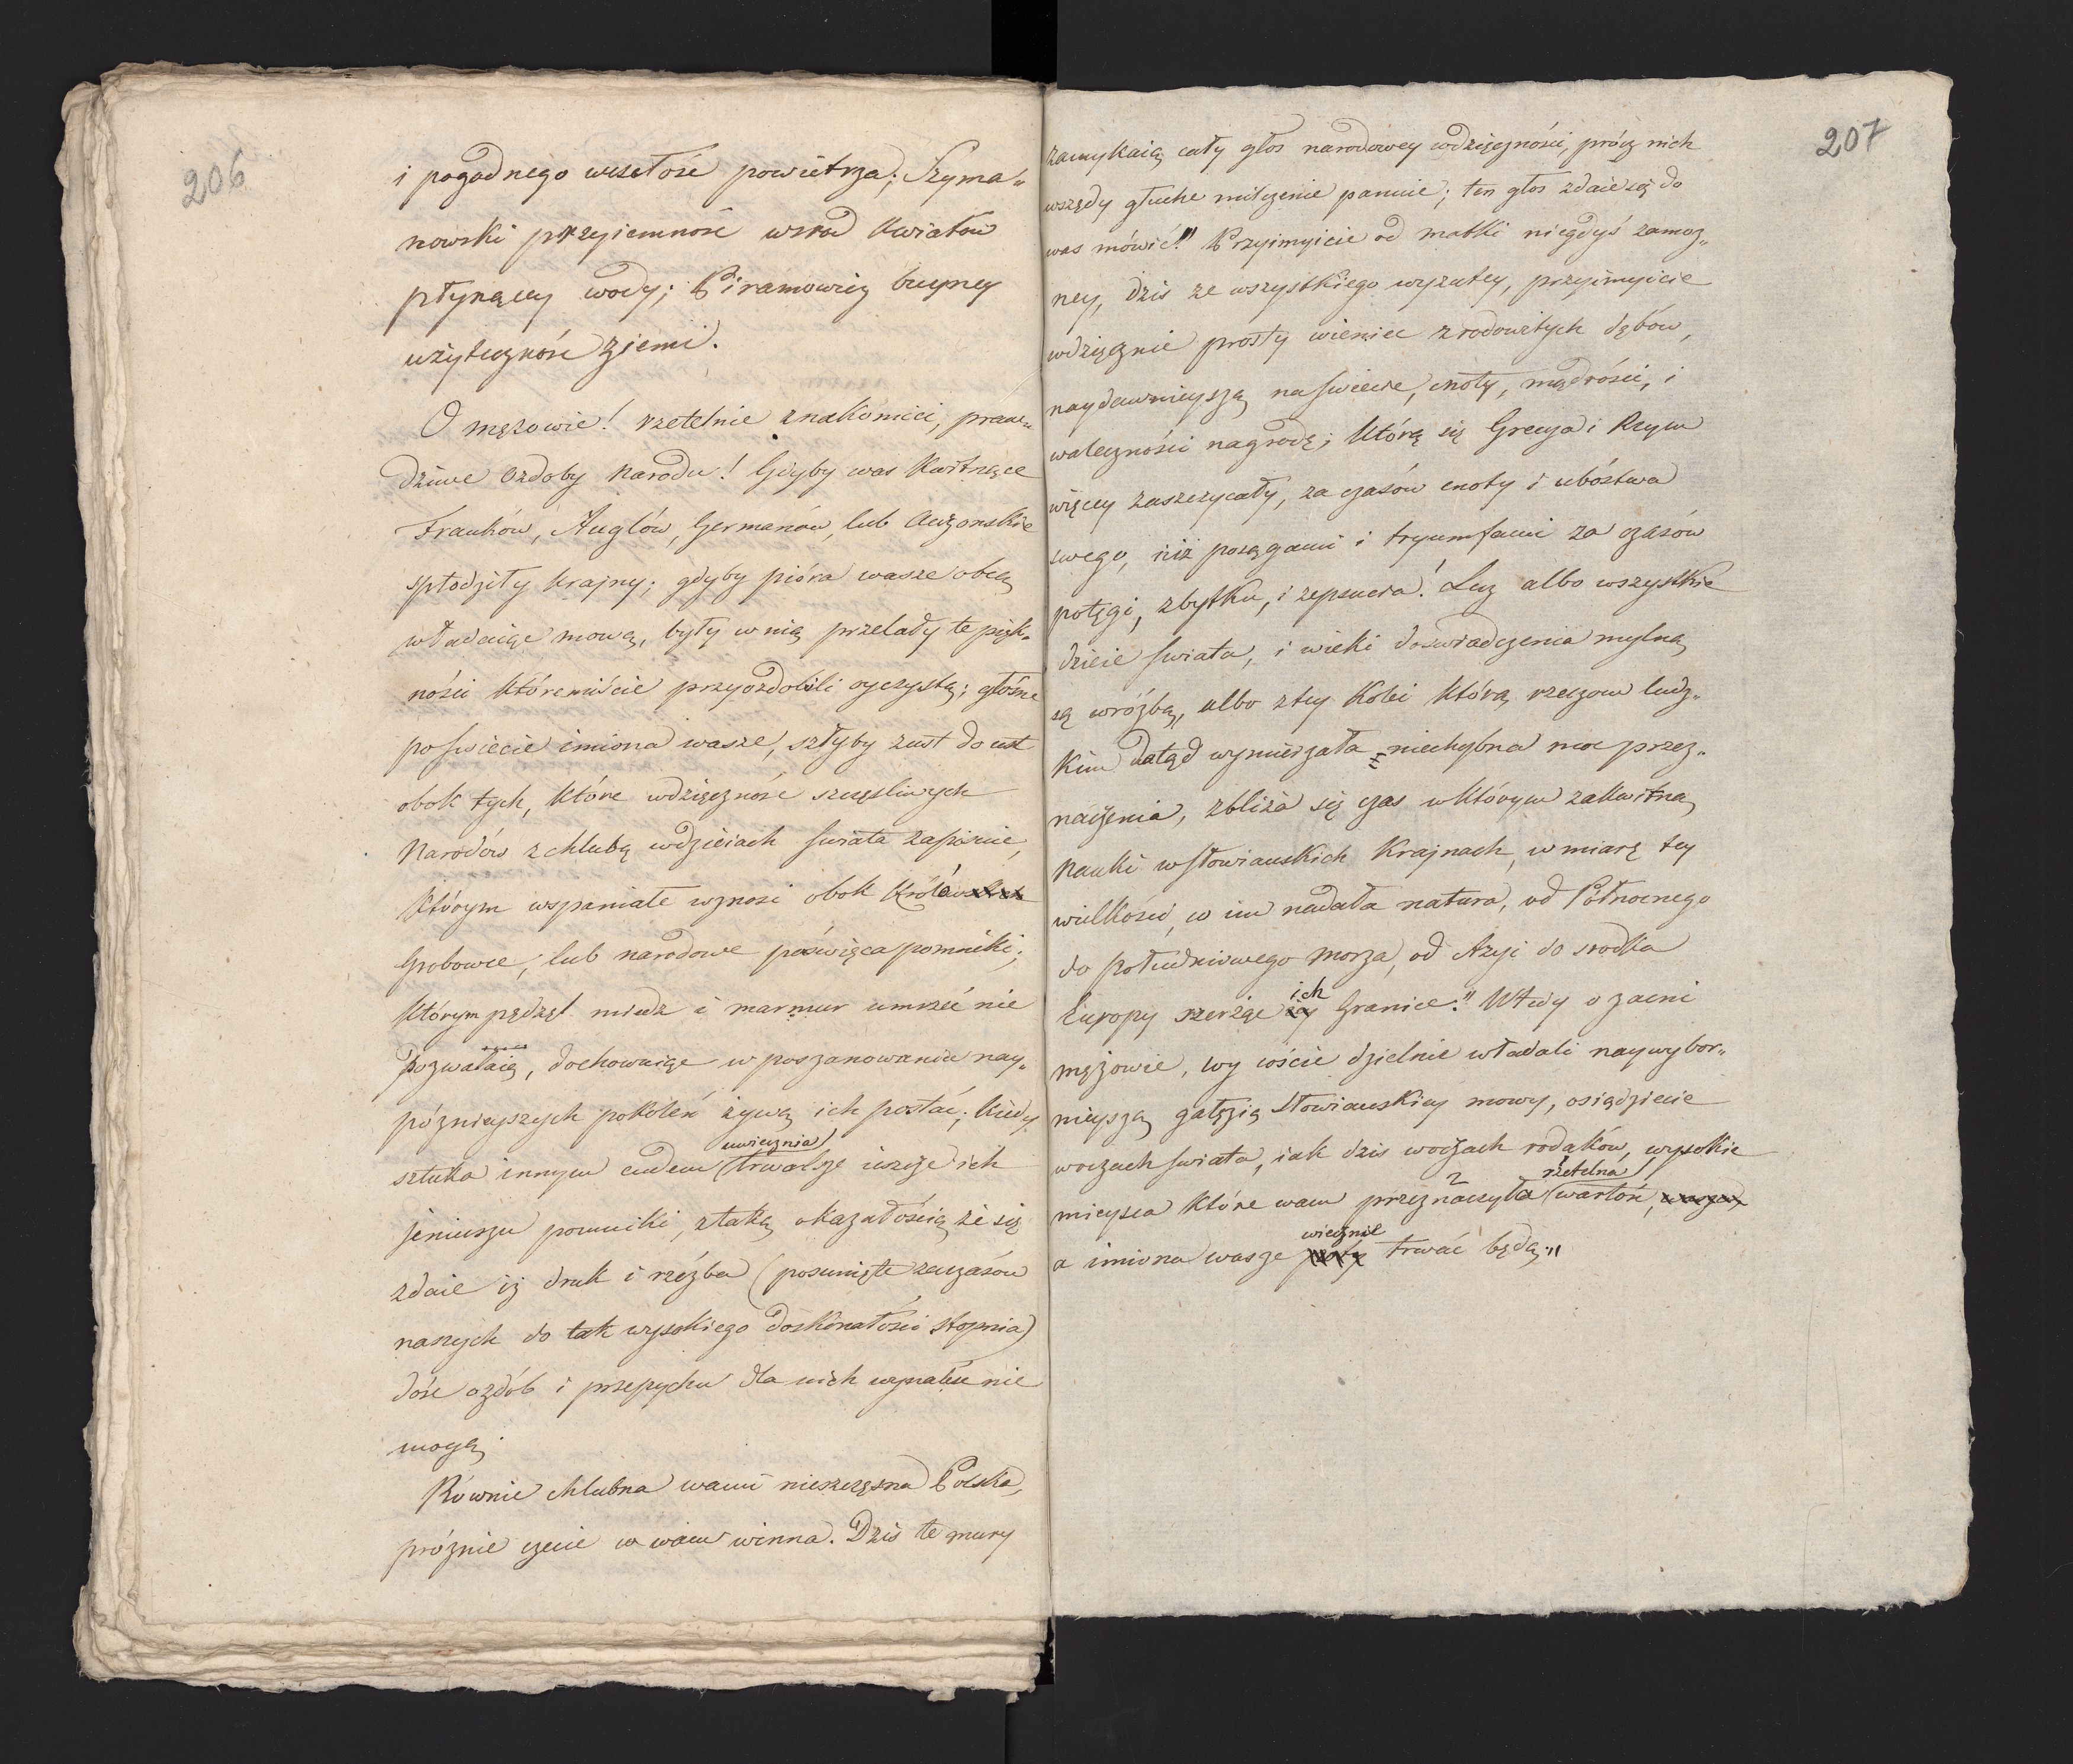 206
i pogodnego wesołość powietrza; Szyma„
nowski przyiemność wsrod kwiatów
płynącey wody; Piramowicz buyney
użyteczność ziemi.
O mężowie! rzetelnie znakomici, praw„
dziwe ozdoby narodu! Gdyby was kwitnące
Franków, Anglów, Germanów, lub Auzonskie
spłodziły krainy; gdyby pióra wasze obcą
władaiąc mową, były w nią przelały te pięk„
ności któremiście przyozdobili oyczystą; głośne
po świecie imiona wasze, szłyby z ust do ust
obok tych, które wdzięczność szczęsliwych
Narodów z chlubą w dzieiach swiata zapisuie,
którym wspaniałe wznosi obok Królów
Grobowce, lub narodowe poświęca pomniki;
którym pędzel miedz i marmur umrzeć nie
pozwalaią, dochowuiąc w poszanowaniu nay„
poznieyszych pokoleń żywą ich postać; kiedy
uwiecznia
sztuka innym cudem trwalsze ieszcze ich
jeniuszu pomniki, z taką okazałością że się
zdaie iż druk i rzézba (posunięte za czasów
naszych do tak wysokiego doskonałości stopnia)
dość ozdób i przepychu dla nich wynaleść nie
mogą.
Równie chlubna wami nieszczęsna Polska,
próżnie czcicie co wam winna. Dziś te mury
207
zamykaią cały głos narodowey wdzięczności, prócz nich
wszędy głuche milczenie panuie; ten głos zdaie się do
was mówić!" Przyimyicie od matki niegdyś zamoz„
ney, dzis ze wszystkiego wyzutey, przyimyicie
wdzięcznie prosty wieniec z rodowitych dębów,
naydawnieyszą na swiecie, cnoty, mądrości, i
waleczności nagrodę; którą się Grecya i Rzym
więcey zaszczycały, za czasów cnoty i ubóstwa
swego, niż posągami i tryumfami za czasów
potęgi, zbytku, i zepsucia! Lecz albo wszystkie
dzieie swiata, i wieki doswiadczenia mylną
są wróżbą, albo z tey kolei którą rzeczom ludz„
kim dotąd wymierzała niechybna moc przez„
naczenia, zbliża się czas w którym zakwitną
Nauki w słowianskich Krajnach, w miarę tey
wielkości, co im nadała natura, od Północnego
do południowego morza, od Azyi do srodka
ich
Europy szerząc Granice." Wtedy o zacni
mężowie, wy coście dzielnie władali naywybor„
nieyszą gałęzią Słowianskiey mowy, osiądziecie
w oczach swiata, iak dzis w oczach rodaków, wysokie
rzetelna
mieysca które wam przeznaczyła wartość,
wiecznie
a imiona wasze trwać będą."